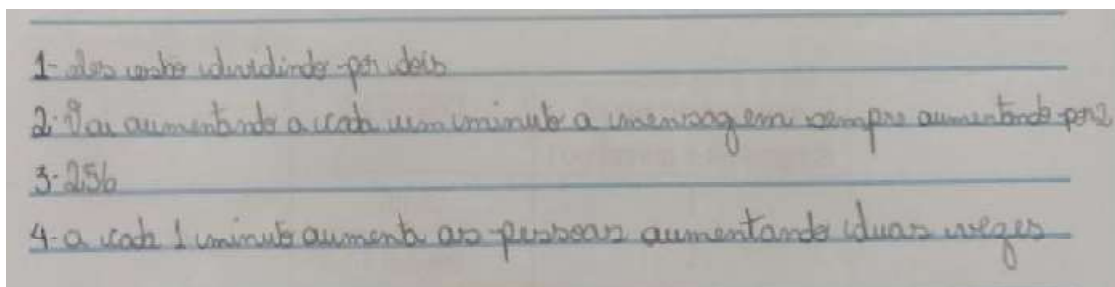 1- eles estão dividindo por dois
2- Vai aumentando a cada um minuto a mensagem sempre aumentando por 2
3- 256
4- a cada 1 minuto aumenta as pessoas aumentando duas vezes